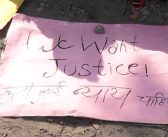 We Want
Justice!
हामी लाई न्याय चाहि